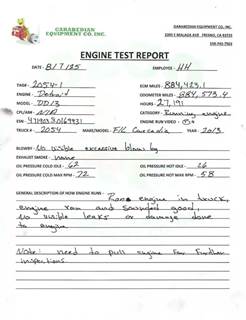 GARABEDIAN
EQUIPMENT CO, INC.
GARABEDIAN EQUIPMENT CO, INC.
FRESNO, CA
ENGINE TEST REPORT
DATE: 8/7/25
EMPLOYEE: HH
TAG#: 2054-1
ECM MILES: 884,423.1
ENGINE: Detroit
ODOMETER MILES: 884,573.4
MODEL: DD13
HOURS: 27,191
CPL/AR#: N/A
CATEGORY: Running engine
ESN#:
ENGINE RUN VIDEO:
TRUCK #: 2054
MAKE/MODEL: F/L Cascadia
YEAR: 2013
BLOWBY: No visible excessive blow by
EXHAUST SMOKE: none
OIL PRESSURE COLD IDLE: 62
OIL PRESSURE HOT IDLE: 26
OIL PRESSURE COLD MAX RPM: 72
OIL PRESSURE HOT MAX RPM: 58
GENERAL DESCRIPTION OF HOW ENGINE RUNS: Ran engine in truck,
engine ran and sounded good,
No visible leaks or damage done
to engine.
Note: need to pull engine for further
inspections.